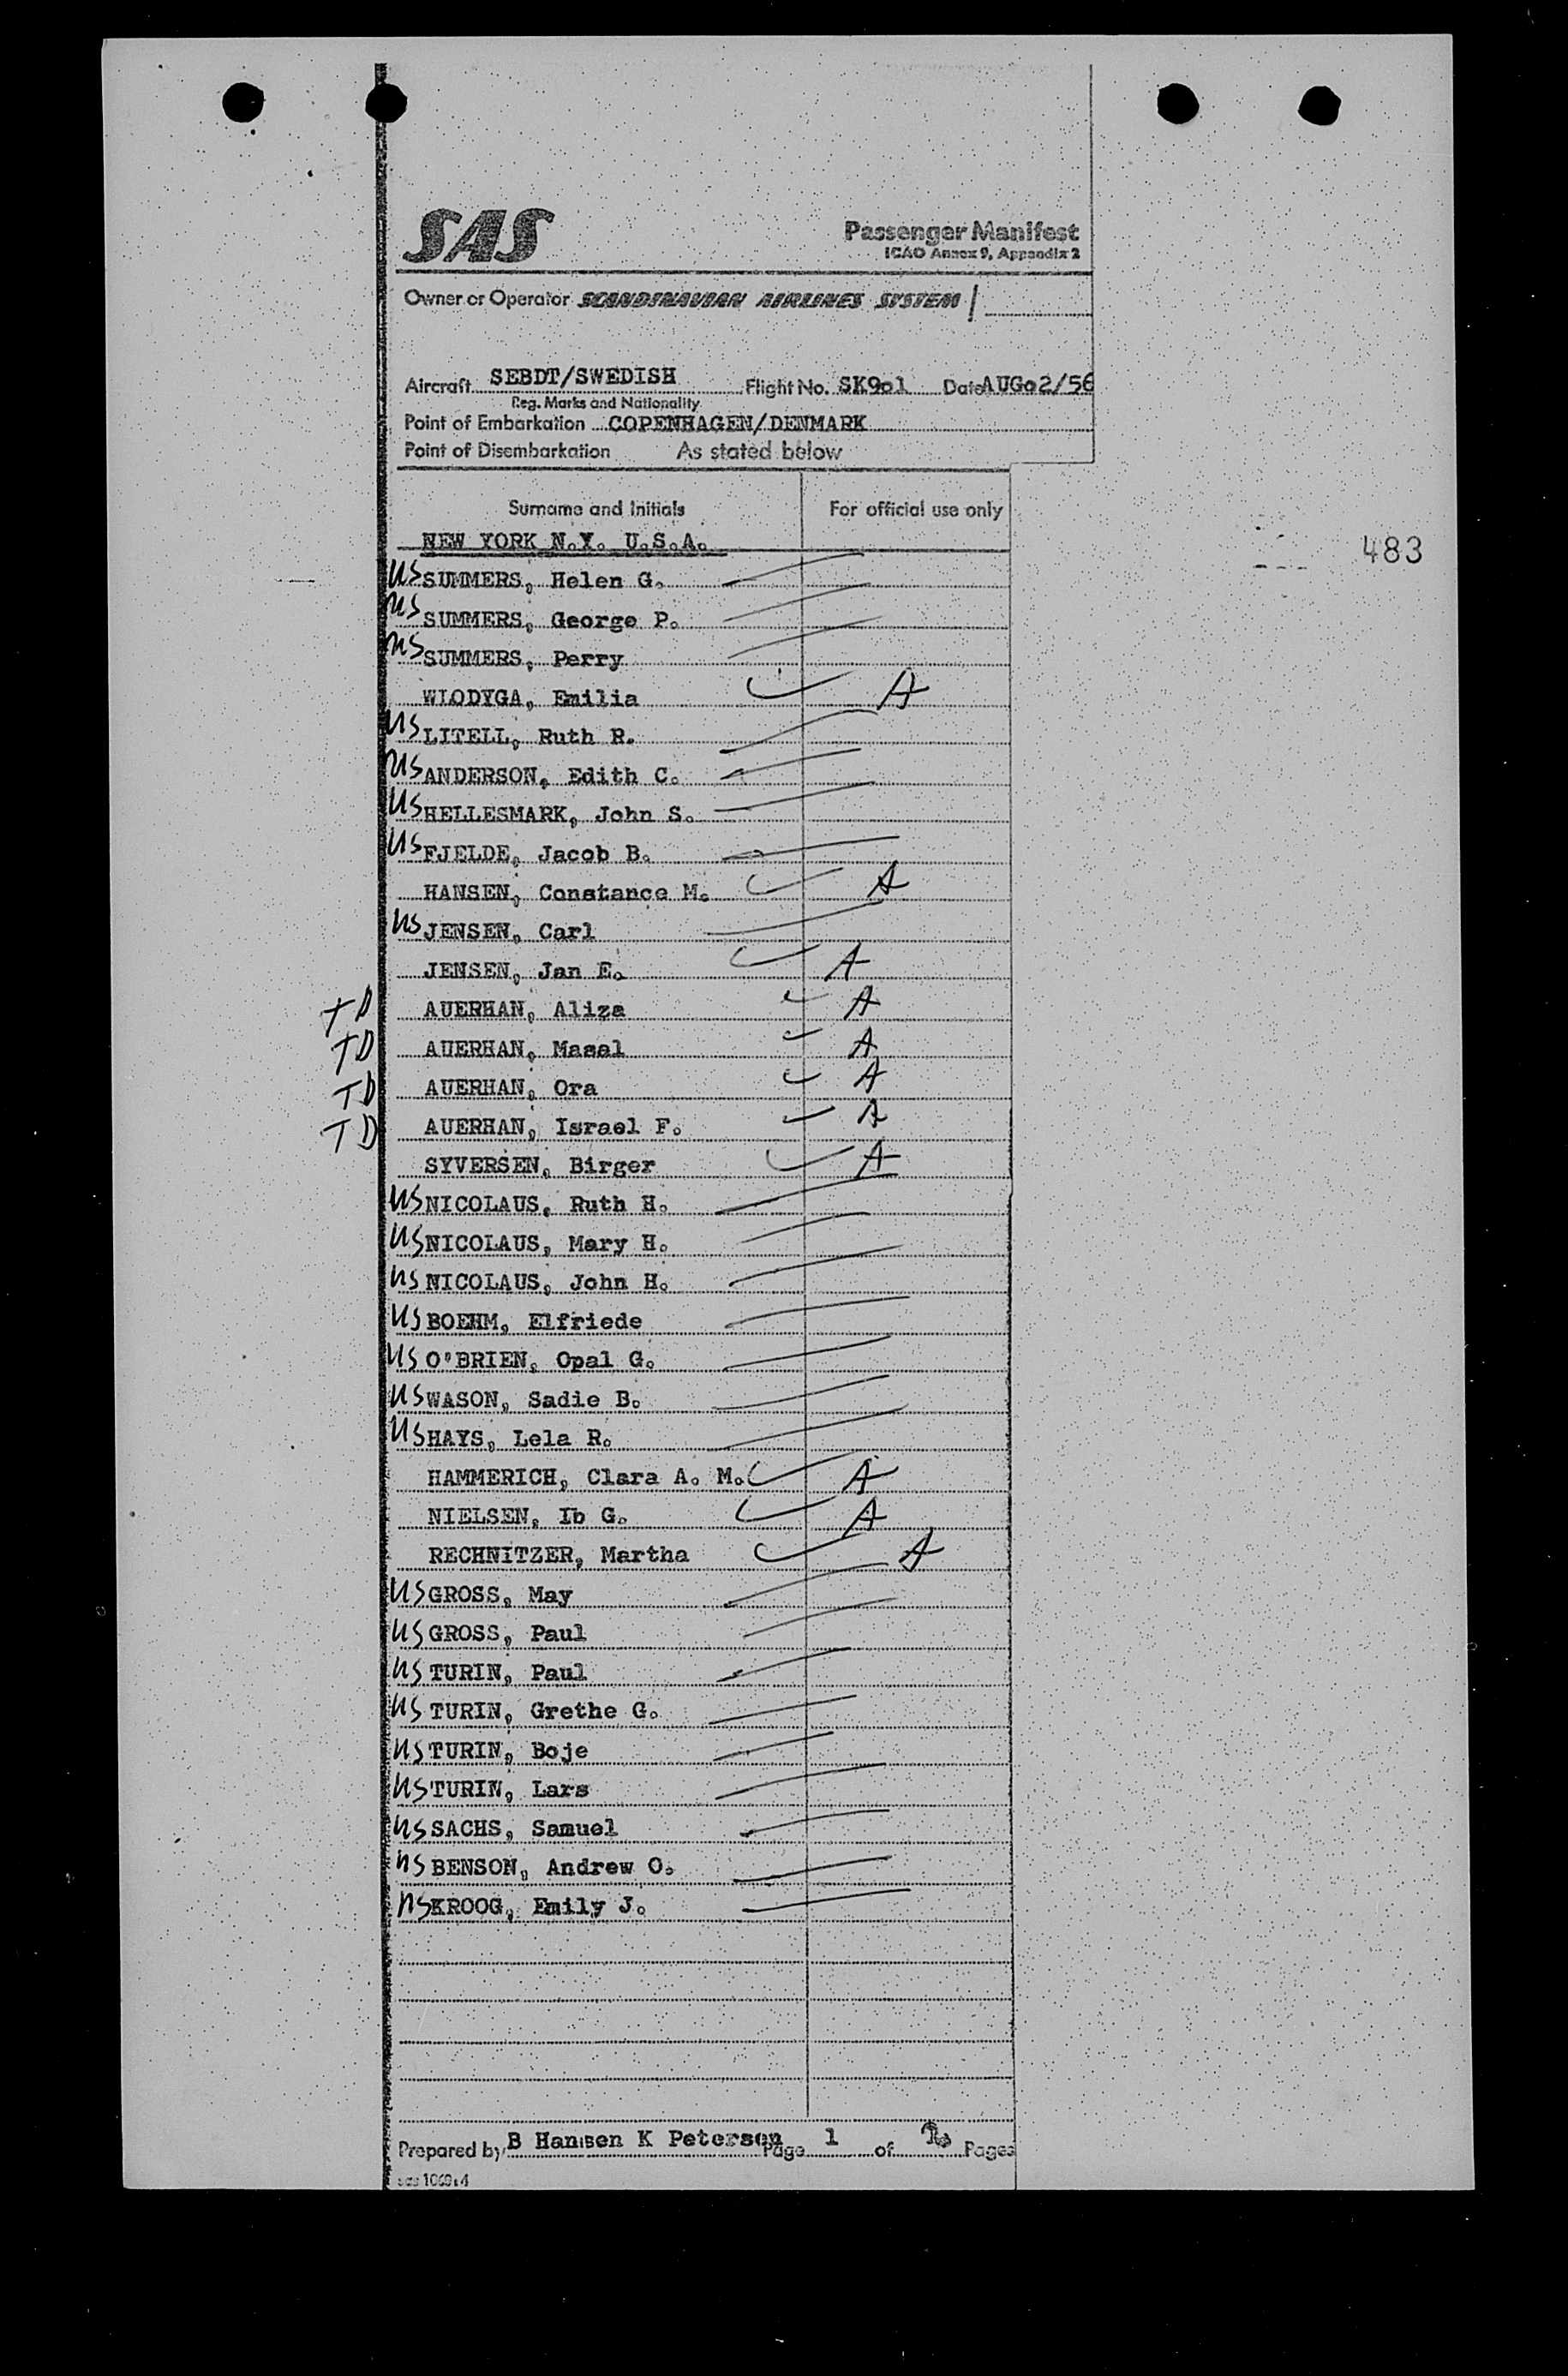 SAS
Passenger Manifest
ICAO Annex 9, Appendix 2
Owner or Operator SCANDINAVIAN AIRLINES SYSTEM
Aircraft SEBDT/SWEDISH Flight No. SK901 Date AUG02/56
Reg. Marks and Nationality
Point of Embarkation COPENHAGEN/DENMARK
Point of Disembarkation As stated below
Surname and Initials For official use only
NEW YORK N.Y. U.S.A.
483
US SUMMERS, Helen G.
US SUMMERS, George P.
US SUMMERS, Perry
WLODYGA, Emilia A
US LITELL, Ruth R.
US ANDERSON, Edith C.
US HELLESMARK, John S.
US FJELDE, Jacob B.
HANSEN, Constance M. A
US JENSEN, Carl
JENSEN, Jan E. A
TD AUERHAN, Aliza A
TD AUERHAN, Masal A
TD AUERHAN, Ora A
TD AUERHAN, Israel F. A
SYVERSEN, Birger A
US NICOLAUS, Ruth H.
US NICOLAUS, Mary H.
US NICOLAUS, John H.
US BOEHM, Elfriede
US O'BRIEN, Opal G.
US WASON, Sadie B.
US HAYS, Lela R.
HAMMERICH, Clara A. M. A
NIELSEN, Ib G. A
RECHNITZER, Martha A
US GROSS, May
US GROSS, Paul
US TURIN, Paul
US TURIN, Grethe G.
US TURIN, Boje
US TURIN, Lars
US SACHS, Samuel
US BENSON, Andrew O.
US KROOG, Emily J.
Prepared by B Hansen K Petersen Page 1 of Pages